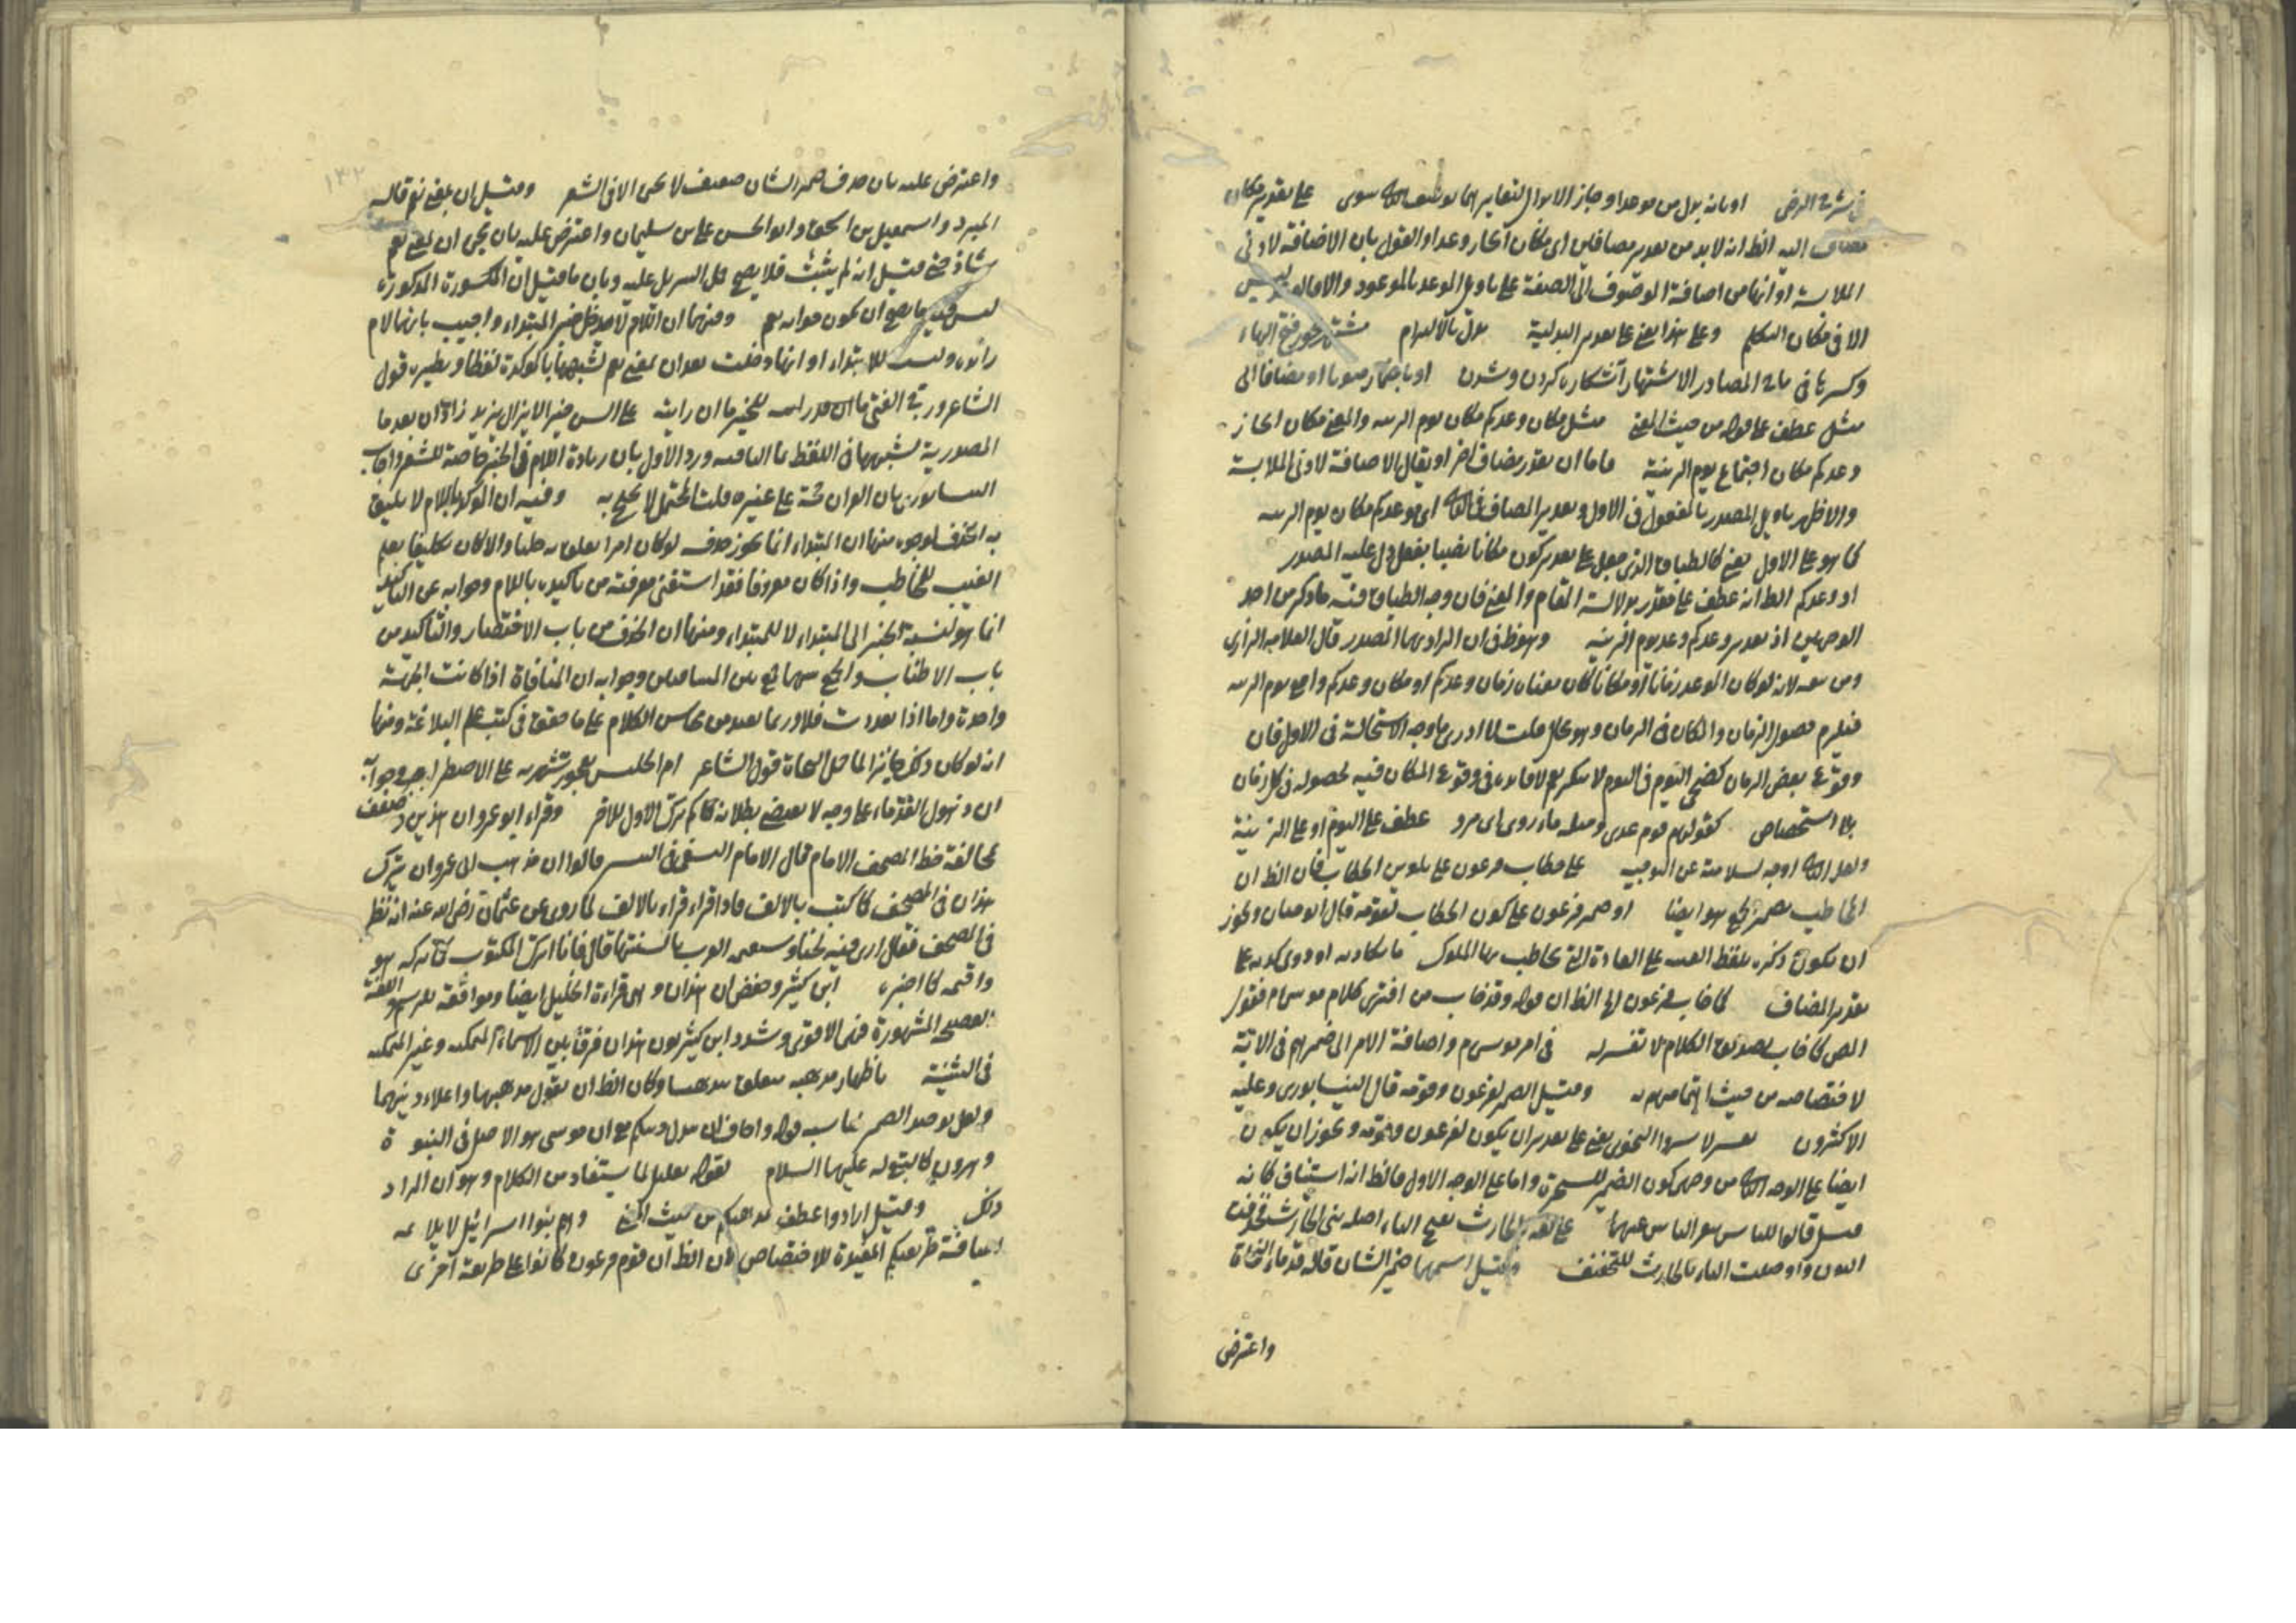 في شرح الرضى او بانه بدل من موعدا وجاز الابدال لتغايرهما بوصف الثاني سوى على تقدير مكان
مضاف اليه الظ انه لابد من تقدير مضافين اى مكان انجاز وعدا والقول بان الاضافة لادنى
الملابسة او انها من اضافة الموصوف الى الصفة على تاويل الموعد بالموعود والاقالوعد ليس
الا فى مكان التكلم وعلى هذا يعنى على تقدير البدلية يدل بالالتزام مشتهر بفتح الهاء
وكسرها فى تاج المصادر الاشتهار آشكارا كردن وشدن او باضمار منصوبا او مضافا الى
مثل عطف على قوله من حيث المعنى مثل مكان وعدكم مكان يوم الزينة والمعنى مكان انجاز
وعدكم مكان اجتماع يوم الزينة فاما ان يقدر مضاف اخر او يقال الاضافة لادنى الملابسة
والاظهر تاويل المصدر بالمفعول فى الاول وتقدير المضاف فى الثانى اى موعدكم مكان يوم الزينة
كما هو على الاول يعنى كالطباق الذى جعل على تقدير كون مكانا نصبا بفعل دل عليه المصدر
او وعدكم الظ انه عطف على مقدر بدلالة المقام والمعنى فان وجه الطباق فيه ما ذكر من احد
الوجهين اذ تقدير وعدكم وعد يوم الزينة وهو ظ فى ان المراد بهما المصدر قال العلامة الرازى
ومن تبعه لانه لو كان الموعد زمانا او مكانا كان معناه زمان وعدكم او مكان وعدكم واقع يوم الزينة
فيلزم حصول الزمان والمكان فى الزمان وهو محال قلت لا ادرى ما وجه الاستحالة فى الاول فان
وقوع بعض الزمان كضحى اليوم فى اليوم لا ينكر نعم لا فائدة فى وقوع المكان فيه لحصوله فى كل زمان
بلا استخصاص كقولهم قوم عدى ومثله ماء روى اى مرو عطف على اليوم او على الزينة
ولعل الثانى اوجه لسلامته عن التوجيه على خطاب فرعون على تلوين الخطاب فان الظ ان
الخاطب بضمير الجمع هو ايضا او ضمير فرعون على كون الخطاب لقومه قال ابو حيان ويجوز
ان يكون ذكره بلفظ الغيبة على العادة التى يخاطب بها الملوك ما يكاد به او ذوى كيده على
تقدير المضاف كما خاب فرعون الخ الظ ان قوله وقد خاب من افترى كلام موسى ام فقول
المص كما خاب تصديق الكلام لا تفسير له فى امر موسى ام واضافة الامر الى ضميرهم فى الاية
لاختصاصه من حيث اهتمامهم به وقيل الضمير لفرعون وقومه قال النيسابورى وعليه
الاكثرون تفسير لاسروا النجوى يعنى على تقدير ان يكون لفرعون وقومه ويجوز ان يكون
ايضا على الوجه الثانى من وجهى كون الضمير للسحرة واما على الوجه الاول فالظ انه استيناف كانه
قيل قالوا للناس تنفير الناس عنهما على لغة بلحارث بفتح الباء اصله بنى الحارث فحذفت
النون واوصلت الباء بالحارث للتخفيف وقيل اسمها ضمير الشان قاله قدماء النحاة
واعترض
١٣٢
واعترض عليه بان حذف ضمير الشان ضعيف لا يجئ الا فى الشعر وقيل ان بمعنى نعم قاله
المبرد واسمعيل بن اسحق وابو الحسن على بن سليمان واعترض عليه بان مجئ ان بمعنى نعم
شاذ حتى قيل انه لم يثبت فلا يصح حمل التنزيل عليه وبان ما قيل ان المكسورة المذكورة
ليس فيه ما يصح ان يكون جوابه نعم ومنها ان اللام لا تدخل خبر المبتداء واجيب بانها لام
زائدة وليست للابتداء او انها دخلت بعد ان بمعنى نعم لشبهها بالمؤكدة لفظا ونظيره قول
الشاعر ورج الفتى ما ان رايته للخير ما ان رايته على السن خيرا لا يزال يزيد زاد ان بعد ما
المصدرية لشبهها فى اللفظ بما النافية ورد الاول بان زيادة اللام فى الخبر خاصة للشعر واجاب
النيسابورى بان القران حجة على غيره قلت المحتمل لا يحتج به وفيه ان المؤكد باللام لا يليق
به الحذف لوجوه منها ان المبتداء انما يجوز حذفه لو كان امرا معلوما جليا والا لكان تكليفا بعلم
الغيب للمخاطب واذا كان معروفا فقد استغنى معرفته من تاكيده باللام وجوابه عن التاكيد
انما هو لنسبة الخبر الى المبتداء لا للمبتداء ومنها ان الحذف من باب الاختصار والتاكيد من
باب الاطناب والجمع بينهما جمع بين المتنافيين وجوابه ان المنافاة اذا كانت الجهة
واحدة واما اذا تعددت فلا وربما يعد من محاسن الكلام على ما حقق فى كتب علم البلاغة ومنها
انه لو كان ذلك جائزا لما حمل النحاة قول الشاعر ام الحليس لعجوز شهربه على الاضطرار وجوابه
ان ذهول القدماء على وجه لا يقتضى بطلانه فكم ترك الاول للاخر وقراء ابو عمرو ان هذين وضعف
لمخالفة خط المصحف الامام قال الامام النسفى فى التيسير قالوا ان مذهب ابى عمرو ان يترك
هذان فى المصحف كما كتب بالالف فاذا قراء قراء بالالف لما روى عن عثمان رضى الله عنه انه نظر
فى المصحف فقال ارى فيه لحنا وستقيمه العرب بالسنتها قال فانا اترك المكتوب كما تركه هو
واقيمه كما اخبره ابن كثير وحفص ان هذان وهى قراءة الخليل ايضا وموافقة للرسم واللغة
الفصيحة المشهورة فهى الاقوى وشدد ابن كثير نون هذان فرقا بين الاسماء المتمكنه وغير المتمكنه
فى التثنية باظهار مذهبه متعلق بيذهبا وكان الظ ان يقول مذهبهما واعلاء دينهما
ولعل توحيد الضمير يناسبه قوله واخاف ان يبدل دينكم مع ان موسى هو الاصل فى النبوة
وهرون كالتبع له عليهما السلام لقوله تعليل لما يستفاد من الكلام وهو ان المراد
ذلك وقيل ارادوا عطف مذهبكم من حيث المعنى وهم بنوا اسرائيل لا يلائمه
اضافة طريقتكم المفيدة للاختصاص فان الظ ان قوم فرعون كانوا على طريقة اخرى